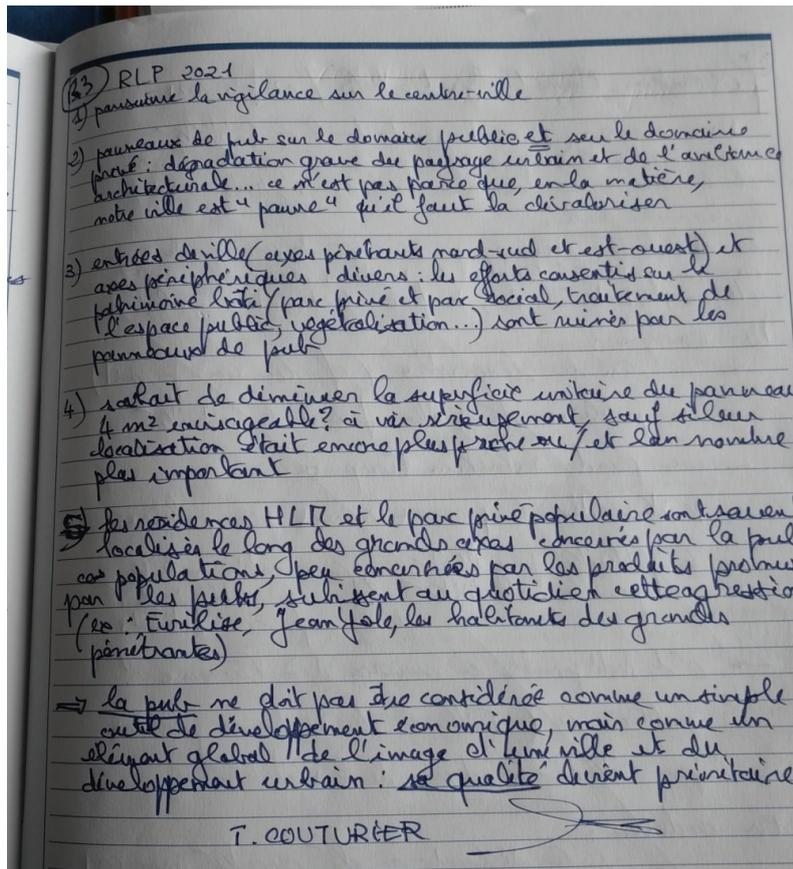 R3 RLP 2021
1) poursuivre la vigilance sur le centre-ville
2) panneaux de pub sur le domaine public et sur le domaine
privé : dégradation grave du paysage urbain et de l'
architecturale... ce n'est pas parce que, en la matière,
notre ville est "pauvre" qu'il faut la dévaloriser
3) entrées de ville (axes pénétrants nord-sud et est-ouest) et
axes périphériques divers : les efforts consentis sur le
patrimoine bâti (parc privé et parc social, traitement de
l'espace public, végétalisation...) sont ruinés par les
panneaux de pub
4) de diminuer la superficie unitaire du panneau
4 m² envisageable ? à voir sérieusement, sauf si leur
localisation était encore plus proche ou/et leur nombre
plus important
5 les résidences HLM et le parc privé populaire sont souven
localisés le long des grands axes concernés par la pub
ces populations, peu concernées par les produits promu
par les pubs, subissent au quotidien cette agressio
(ex : Jean Yole, les habitants des grandes
pénétrantes)
⇒ la pub ne doit pas être considérée comme un simple
outil de développement économique, mais comme un
élément global de l'image d'une ville et du
développement urbain : sa qualité devient prioritaire
T. COUTURIER